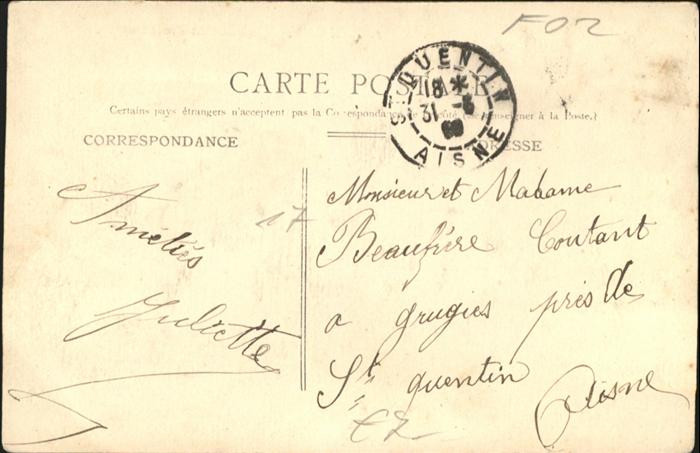 F02
CARTE POSTALE
Certains pays étrangers n'acceptent pas la Correspondance de ce côté (Se renseigner à la Poste.)
ST QUENTIN
18 *
31 -5
AISNE
CORRESPONDANCE
ADRESSE
17
Amitiés
Juliette
Monsieur et Madame
Beaufrère Coutant
a grugies près de
St quentin
Aisne